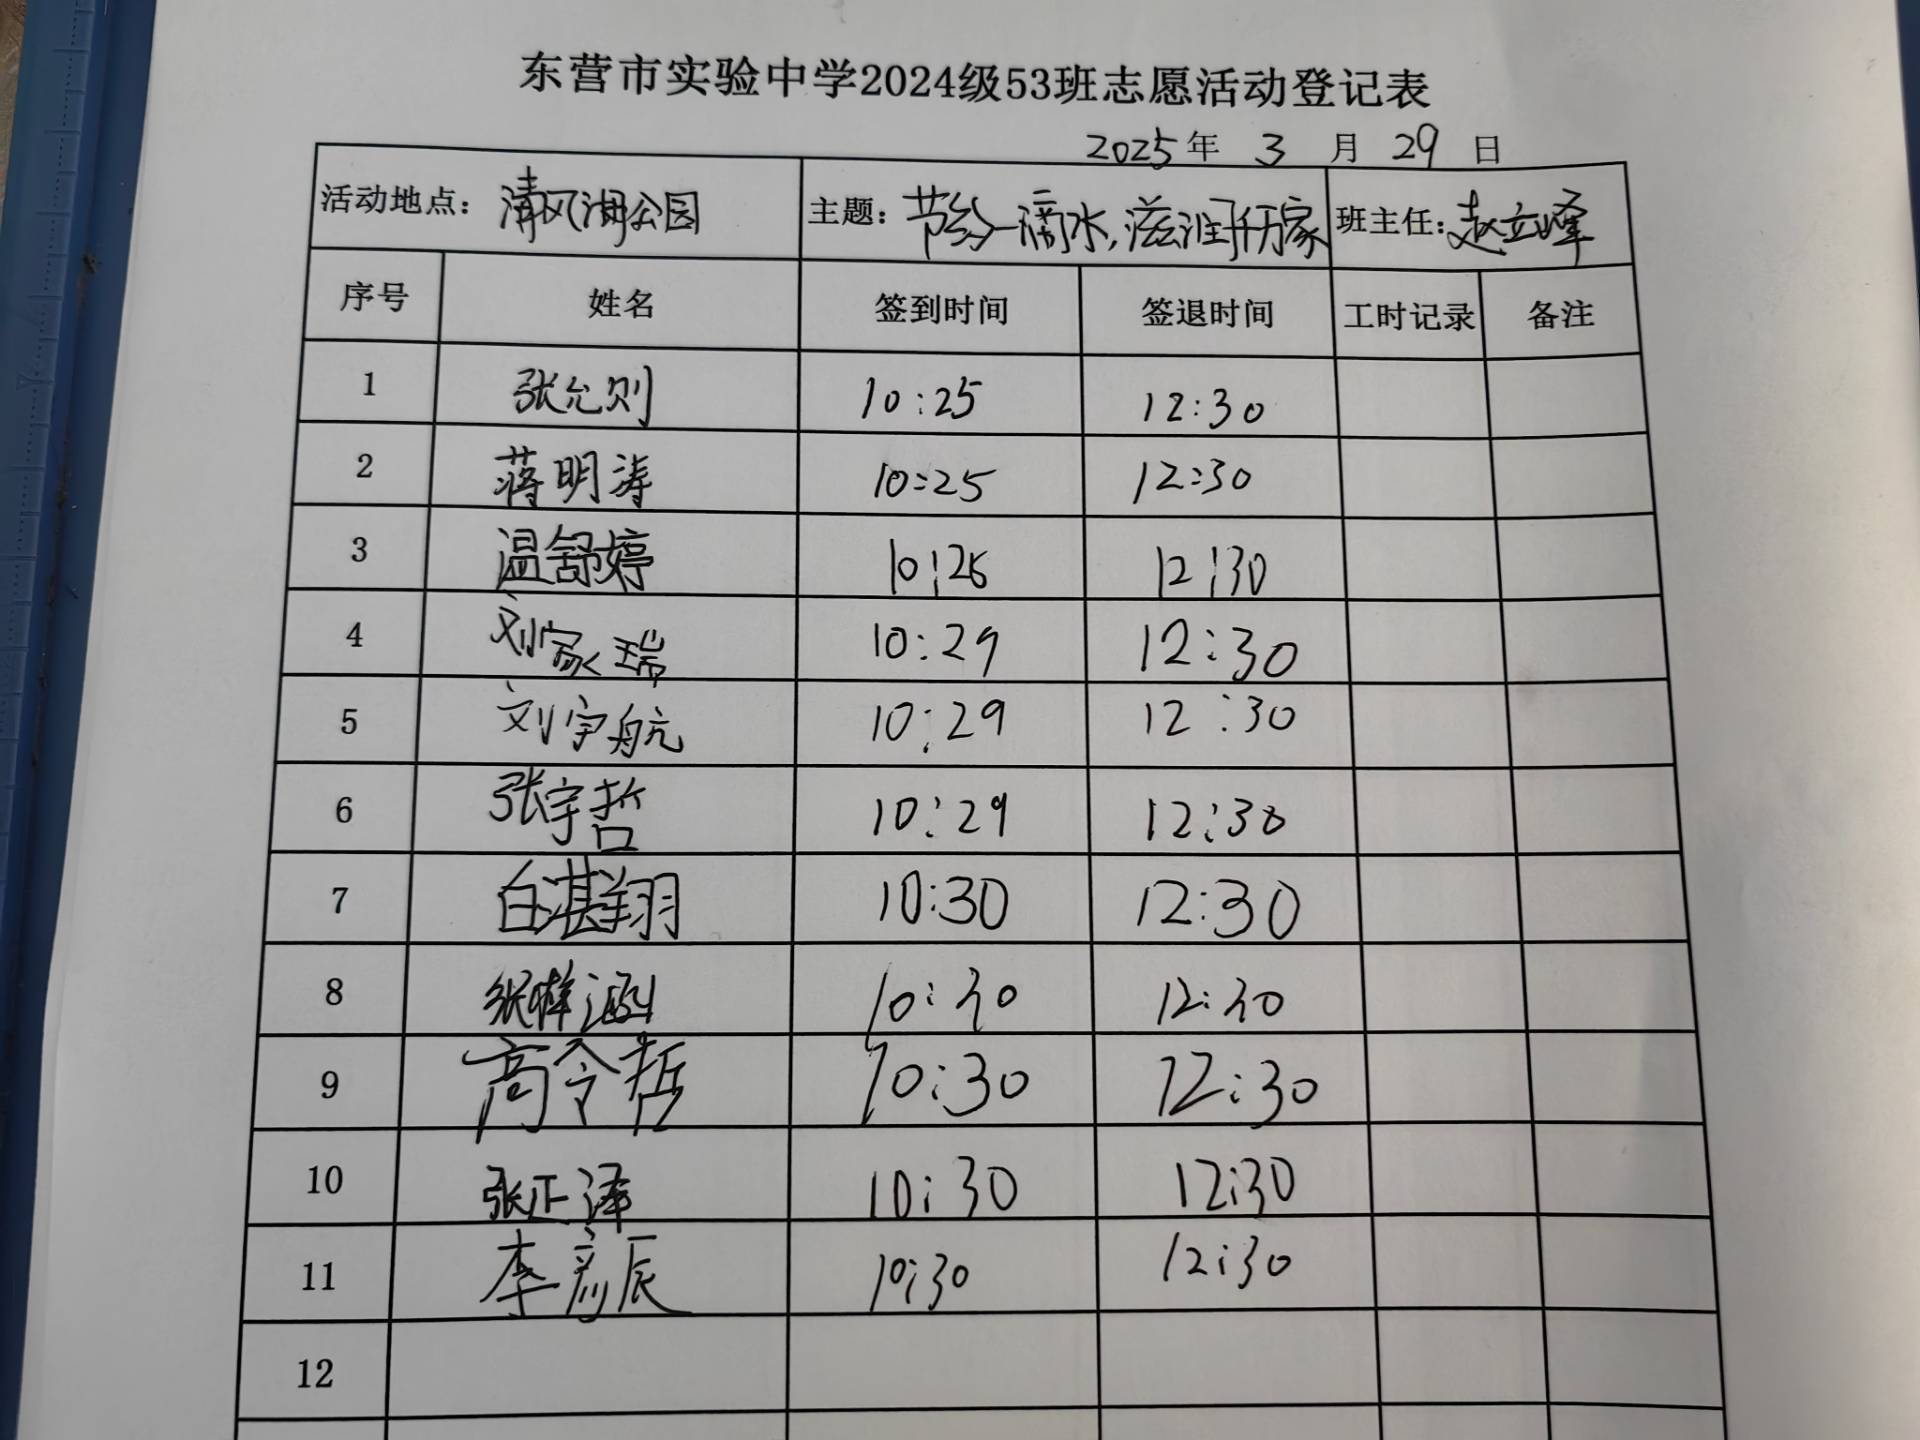 东营市实验中学2024级53班志愿活动登记表
2025年 3 月 29 日
活动地点：清风湖公园 主题：节约一滴水，滋润千万家 班主任：赵立峰
序号 姓名 签到时间 签退时间 工时记录 备注
1 张允则 10:25 12:30
2 蒋明涛 10:25 12:30
3 温舒婷 10:26 12:30
4 刘家瑞 10:29 12:30
5 刘宇航 10:29 12:30
6 张宇哲 10:29 12:30
7 白湛翔 10:30 12:30
8 张梓涵 10:30 12:30
9 高令哲 10:30 12:30
10 张正泽 10:30 12:30
11 李彦辰 10:30 12:30
12